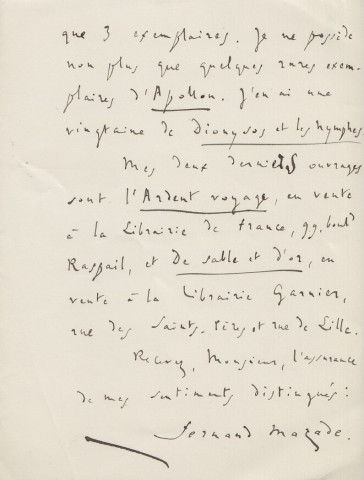 que 3 exemplaires. Je ne possède
non plus que quelques rares exem-
plaires d'Apollon. J'en ai une
vingtaine de Dionysos et les nymphes
Mes deux derniers ouvrages
sont l'Ardent voyage, en vente
à la Librairie de France, 99. boulᵈ
Raspail, et De sable et d'or, en
vente à la Librairie Garnier,
rue des Saints-Pères et rue de Lille.
Recevez, Monsieur, l'assurance
de mes sentiments distingués :
Fernand Mazade.